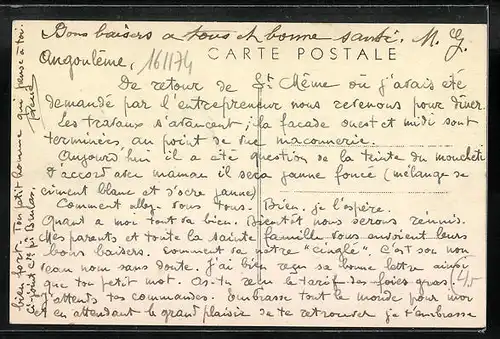 Bons baisers a tous et bonne santé. M. G.
CARTE POSTALE
Angoulême, 161174
De retour de St Même où j'avais été
demandé par l'entrepreneur nous revenons pour dîner.
Les travaux s'avancent; la façade ouest et midi sont
terminées au point de vue maçonnerie.
Aujourd'hui il a été question de la teinte du moucheti
d'accord avec maman il sera jaune foncé (mélange de
ciment blanc et d'ocre jaune)
Comment allez-vous tous. Bien, je l'espère.
Quant a moi tout va bien. Bientôt nous serons réunis.
Mes parents et toute la sainte famille vous envoient leurs
bons baisers. Comment va notre "cinglé". C'est son nou
veau nom sans doute. J'ai bien reçu sa bonne lettre ainsi
que ton petit mot. As-tu reçu le tarif des foies gras.
J'attends tes commandes. Embrasse tout le monde pour moi
et en attendant le grand plaisir de te retrouver je t'embrasse
bien fort. Ton petit homme qui pense à toi.